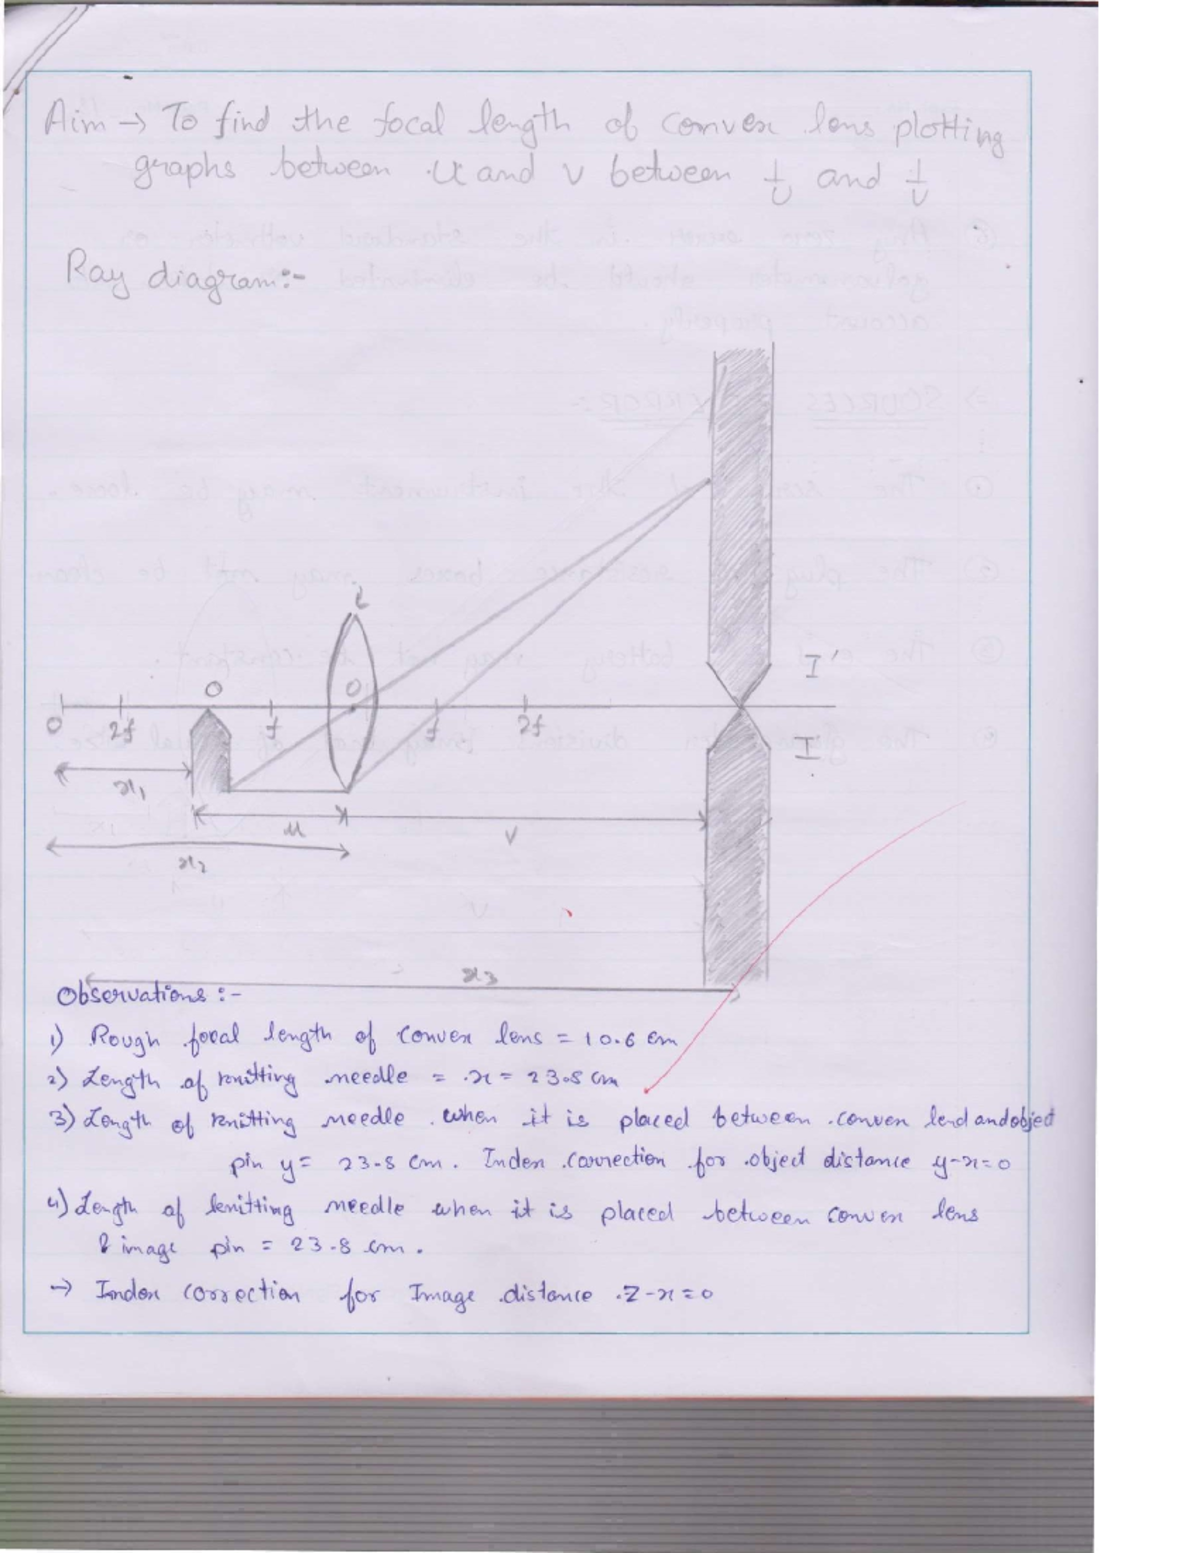 Aim → To find the focal length of convex lens plotting
graphs between u and v between 1/U and 1/V
Ray diagram:-
L
I'
O
O
0
2f
f
f
2f
I
x1
u
v
x2
x3
Observations :-
1) Rough focal length of convex lens = 10.6 cm
2) Length of knitting needle = x = 23.8 cm
3) Length of knitting needle when it is placed between convex lend and object
pin y = 23.8 cm. Index correction for object distance y-x=0
4) Length of knitting needle when it is placed between convex lens
& image pin = 23.8 cm.
→ Index correction for Image distance Z-x=0